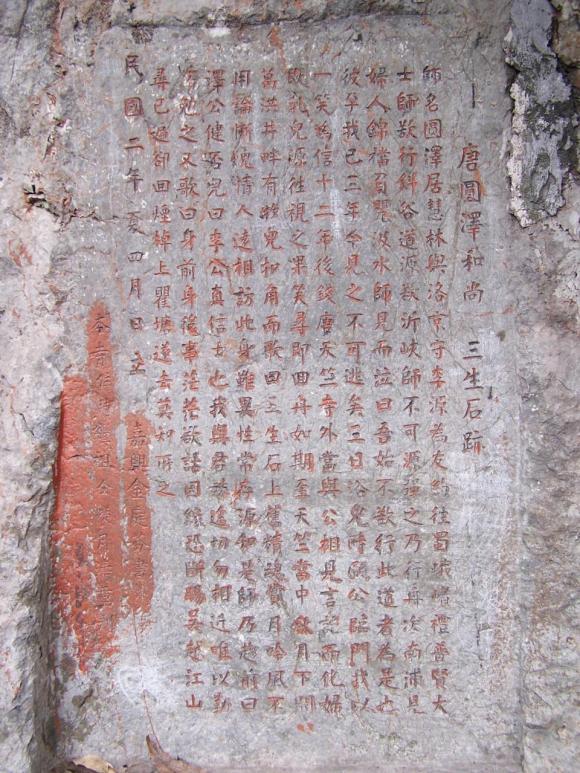 唐圓澤和尚 三生石跡
師名圓澤居慧林與洛京守李源為友約往蜀峨嵋禮普賢大
士師欲行斜谷道源欲泝峽師不可源強之乃行舟次南浦見
婦人錦襠負甖汲水師見而泣曰吾始不欲行此道者為是也
彼孕我已三年今見之不可逃矣三日浴兒時願公臨門我以
一笑為信十二年後錢唐天竺寺外當與公相見言訖而化婦
既乳兒源往視之果笑尋即回舟如期至天竺當中秋月下聞
葛洪井畔有牧兒扣角而歌曰三生石上舊精魂賞月吟風不
用論慚愧情人遠相訪此身雖異性常存源知是師乃趨前曰
澤公健否兒曰李公真信士也我與君殊途切勿相近唯以勤
修勉之又歌曰身前身後事茫茫欲話因緣恐斷腸吳越江山
尋已遍卻回煙棹上瞿塘遂去莫知所之
民國二年夏四月日立
嘉興金庭芬書